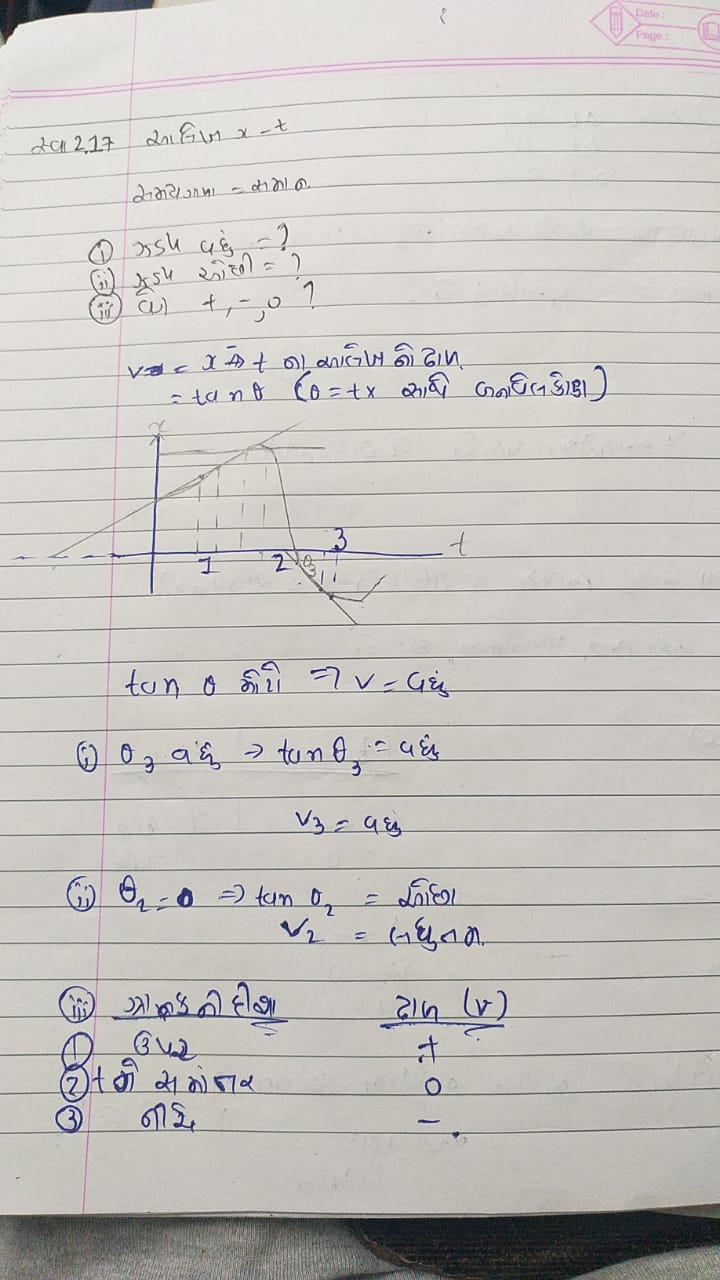 Date :
Page :
સ્વા 2.17 આલેખ x - t
સમયગાળા = સમાન
① ઝડપ વધુ = ?
ⅱ ઝડપ ઓછી = ?
ⅲ +, -, 0 ?
v = x → t ના આલેખ નો ઢાળ
= tan θ (θ = tx સાથે બનાવેલ કોણ)
x
3
t
1 2 θ3
tan θ ⇒ v = વધુ
ⅰ θ3 વધુ → tan θ3 = વધુ
v3 = વધુ
ⅱ θ2 = 0 ⇒ tan θ2 = ઓછા
v2 = લઘુતમ
ⅲ ની દીશા ઢાળ (v)
① ઉપર +
② t ને સમાંતર 0
③ નીચે -